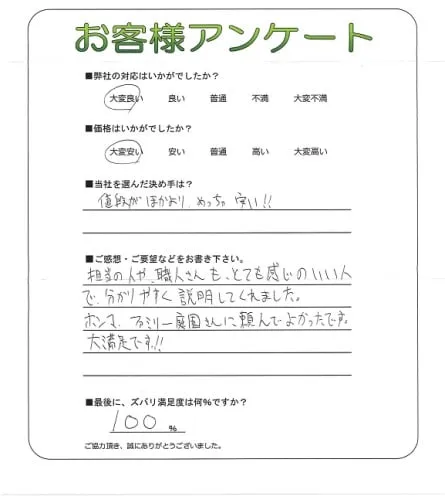 お客様アンケート
■弊社の対応はいかがでしたか？
大変良い 良い 普通 不満 大変不満
■価格はいかがでしたか？
大変安い 安い 普通 高い 大変高い
■当社を選んだ決め手は？
値段がほかより、めっちゃ安い!!
■ご感想・ご要望などをお書き下さい。
担当の人や、職人さんも、とても感じのいい人
で、分かりやすく説明してくれました。
ホンマ、ファミリー庭園さんに頼んでよかったです。
大満足です!!
■最後に、ズバリ満足度は何%ですか？
100 %
ご協力頂き、誠にありがとうございました。